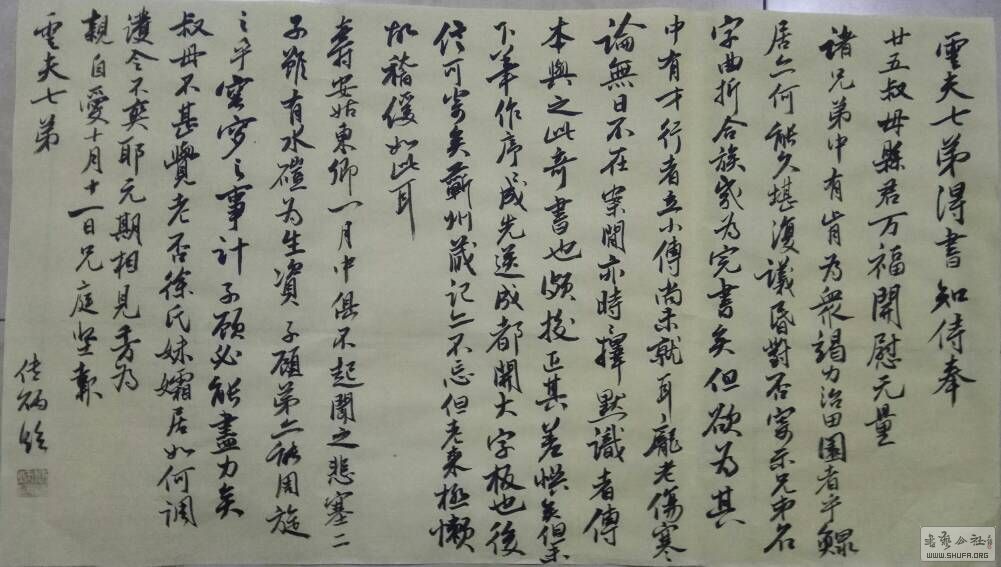 雲夫七弟得書知侍奉
廿五叔母縣君万福開慰元量
諸兄弟中有肯為衆竭力治田園者乎鰥
居亦何能久堪復議昏對否寄示兄弟名
字曲折合族幾為完書矣但欲為其
中有才行者立小傳尚未就耳龐老傷寒
論無日不在案間亦時擇默識者傳
本與之此奇書也頗校正其差悮矣但未
下筆作序序成先送成都開大字板也後
信可寄矣蘄州藏記亦不忘但老來極懶
故稽緩如此耳
壽安姑東卿一月中俱不起聞之悲塞二
子雖有水磑為生資子顧弟亦能周旋
之乎窀穸之事計子顧必能盡力矣
叔母不甚覺老否徐氏妹孀居如何調
護令不爽耶元期相見秀為
親自愛十月十一日兄庭坚報
雲夫七弟
WWW.SHUFA.ORG